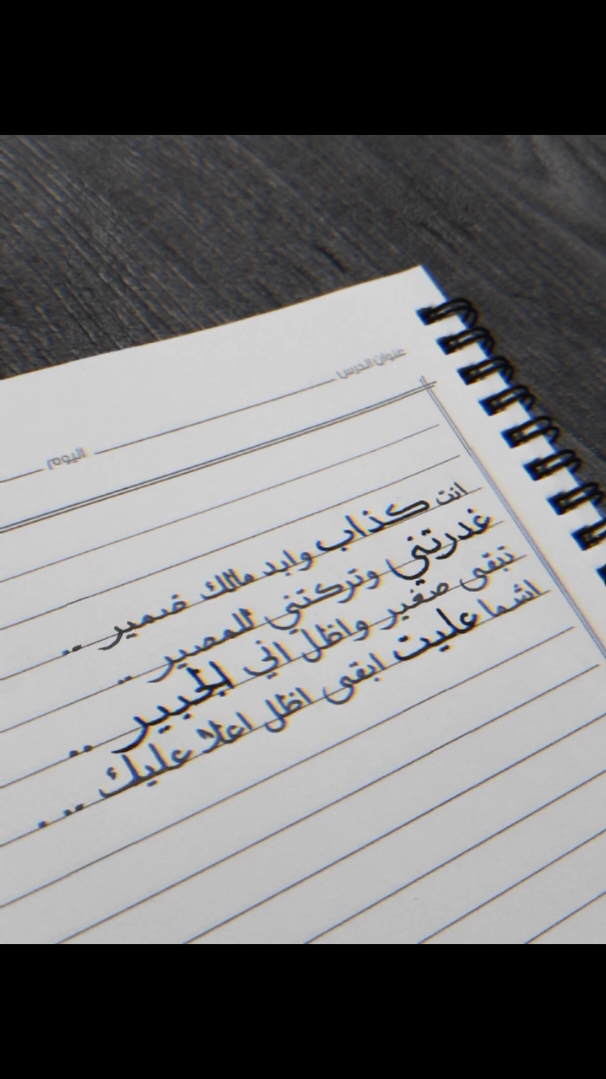 عنوان الدرس
اليوم
انت كذاب وابد مالك ضمير ..
غدرتني وتركتني للمصير ..
تبقى صغير واظل اني الجبير ..
اشما عليت ابقى اظل اعلا عليك .. .